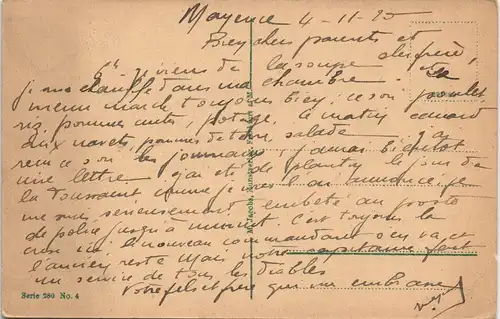 Mayence 4-11-25
Bien chers parents et
cher frère,
6h je viens de la soupe
je me chauffe dans ma chambre. Le
menu marche toujours bien ; ce soir poulet,
riz, pommes cuites, potage. Ce matin canard
aux navets, pommes de terre, salade. J'ai
reçu ce soir les journaux, j'aurai bientôt
une lettre. J'ai été de planton le jour de
la Toussaint comme je vous l'ai annoncé. Je
me suis sérieusement embêté au poste
de police jusqu'à minuit. C'est toujours la
ici. Le nouveau commandant s'en va, et
l'ancien reste. Mais notre capitaine fait
un service de tous les diables
Votre fils et frère qui vous embrasse
Serie 280 No. 4